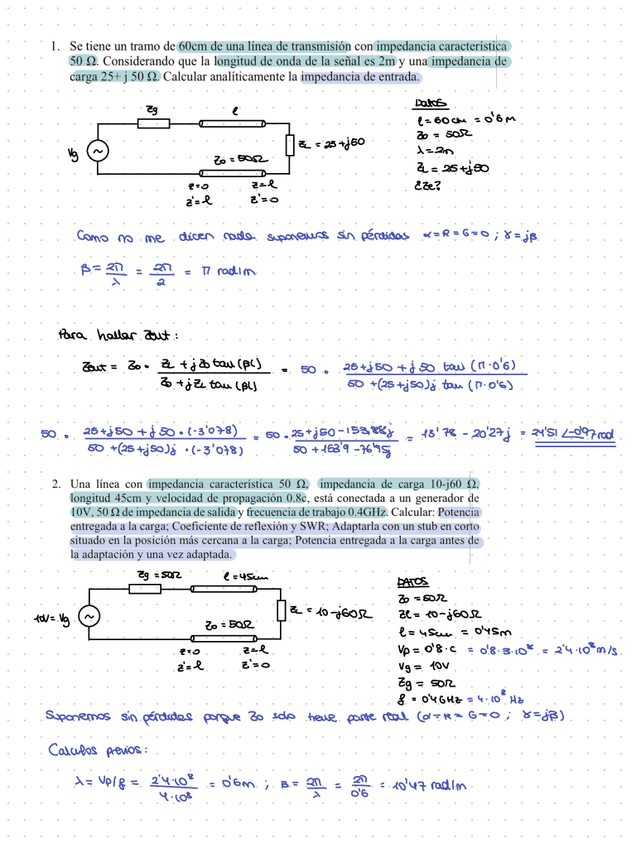 1. Se tiene un tramo de 60cm de una línea de transmisión con impedancia característica
50 Ω. Considerando que la longitud de onda de la señal es 2m y una impedancia de
carga 25+ j 50 Ω. Calcular analíticamente la impedancia de entrada.
Zg l
Vg
Z0 = 50Ω
ZL = 25+j50
z=0 z=l
z'=l z'=0
DATOS
l = 60cm = 0'6m
Z0 = 50Ω
λ = 2m
ZL = 25+j50
Como no me dicen nada suponemos sin pérdidas α=R=G=0 ; γ=jβ
β = 2π/λ = 2π/2 = π rad/m
Para hallar Zout :
Zout = Z0 · (ZL + jZ0 tau(βl)) / (Z0 + jZL tau(βl)) = 50 · (25+j50 + j 50 tau(π·0'6)) / (50 +(25+j50)j tau(π·0'6))
50 · (25+j50 + j50·(-3'078)) / (50 +(25+j50)j ·(-3'078)) = 50 · (25+j50-153,88j) / (50+153'9-76'95j) = 13'78 - 20'27j = 24'51 ∠-0'97 rad
2. Una línea con impedancia característica 50 Ω, impedancia de carga 10-j60 Ω,
longitud 45cm y velocidad de propagación 0.8c, está conectada a un generador de
10V, 50 Ω de impedancia de salida y frecuencia de trabajo 0.4GHz. Calcular: Potencia
entregada a la carga; Coeficiente de reflexión y SWR; Adaptarla con un stub en corto
situado en la posición más cercana a la carga; Potencia entregada a la carga antes de
la adaptación y una vez adaptada.
Zg = 50Ω l = 45cm
10V = Vg
Z0 = 50Ω
ZL = 10-j60Ω
z=0 z=l
z'=l z'=0
DATOS
Z0 = 50Ω
Zl = 10-j60Ω
l = 45cm = 0'45m
Vp = 0'8·c = 0'8·3·10⁸ = 2'4·10⁸ m/s
Vg = 10V
Zg = 50Ω
f = 0'4GHz = 4·10⁸ Hz
Suponemos sin pérdidas porque Z0 solo tiene parte real (α=R=G=0 ; γ=jβ)
Calculos previos :
λ = Vp/f = 2'4·10⁸/4·10⁸ = 0'6m ; β = 2π/λ = 2π/0'6 = 10'47 rad/m